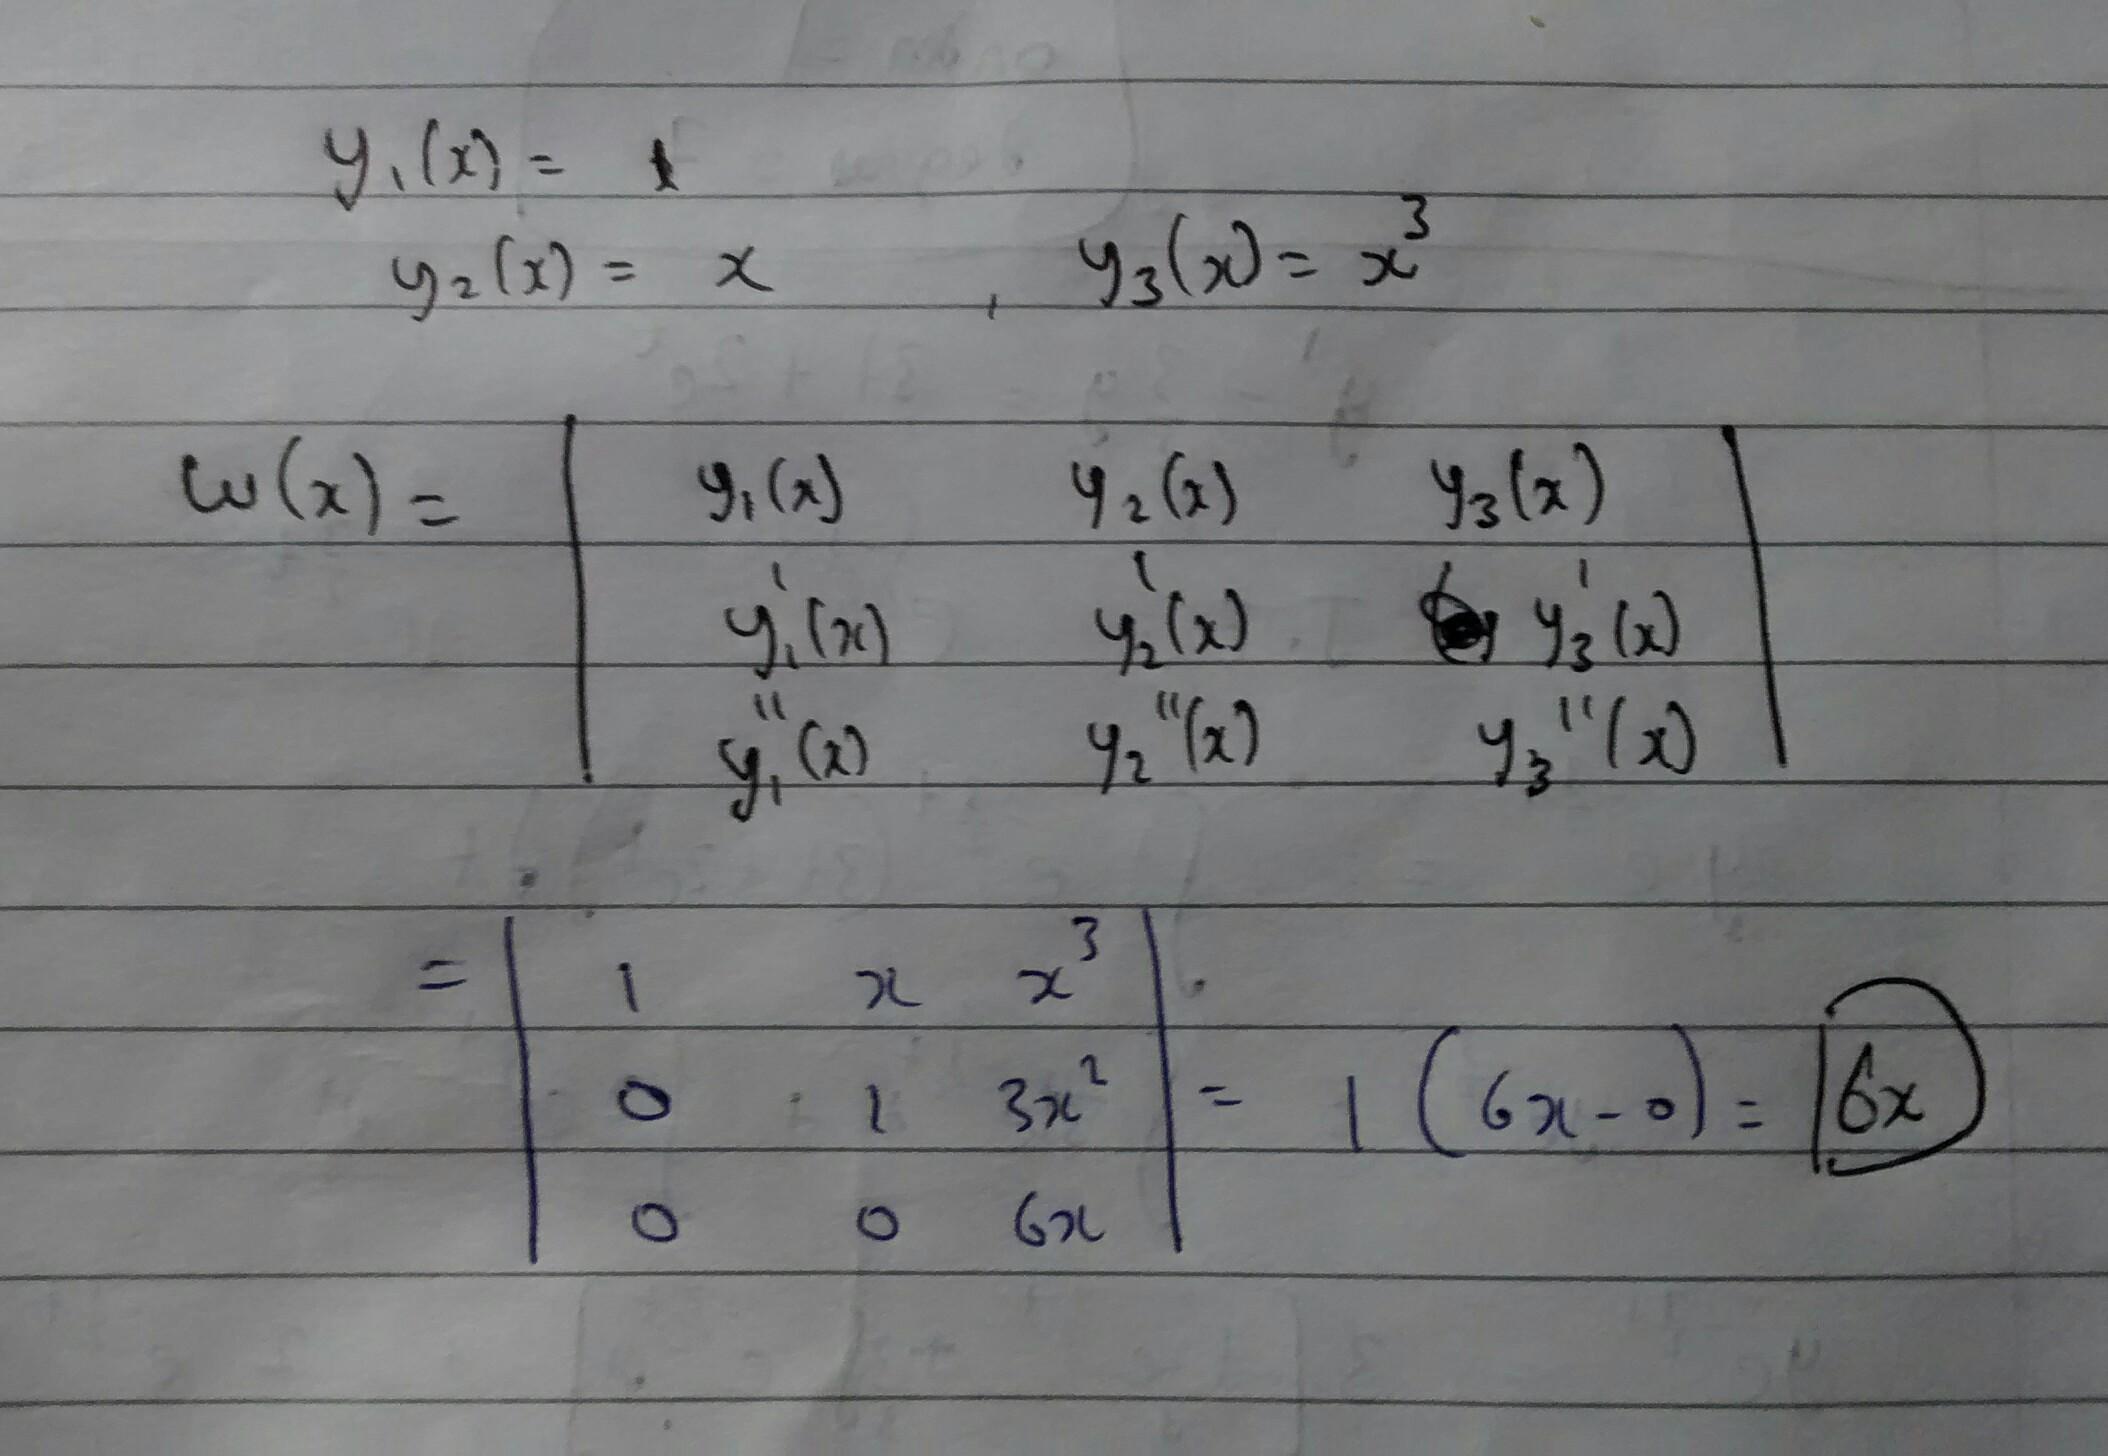 y₁(x) = 1
y₂(x) = x , y₃(x) = x³
w(x) = | y₁(x) y₂(x) y₃(x) |
| y₁'(x) y₂'(x) y₃'(x) |
| y₁''(x) y₂''(x) y₃''(x) |
= | 1 x x³ |
| 0 1 3x² | = 1 (6x - 0) = 6x
| 0 0 6x |